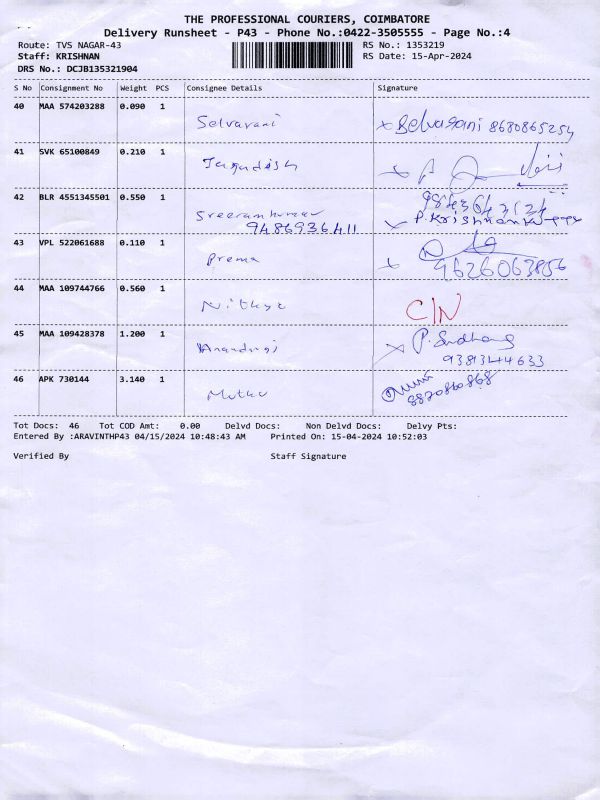 THE PROFESSIONAL COURIERS, COIMBATORE
Delivery Runsheet - P43 - Phone No.:0422-3505555 - Page No.:4
Route: TVS NAGAR-43
RS No.: 1353219
Staff: KRISHNAN
RS Date: 15-Apr-2024
DRS No.: DCJB135321904
S No Consignment No Weight PCS Consignee Details Signature
40 MAA 574203288 0.090 1 Selvarani Selvarani 8680865254
41 SVK 65100849 0.210 1 Jagadish
42 BLR 4551345501 0.550 1 Sreeramkumar P.Krishnan
9486936411
43 VPL 522061688 0.110 1 Prema 9626063856
44 MAA 109744766 0.560 1 Nithya C/N
45 MAA 109428378 1.200 1 P.
9381344633
46 APK 730144 3.140 1 Muthu
8870860868
Tot Docs: 46 Tot COD Amt: 0.00 Delvd Docs: Non Delvd Docs: Delvy Pts:
Entered By :ARAVINTHP43 04/15/2024 10:48:43 AM Printed On: 15-04-2024 10:52:03
Verified By Staff Signature